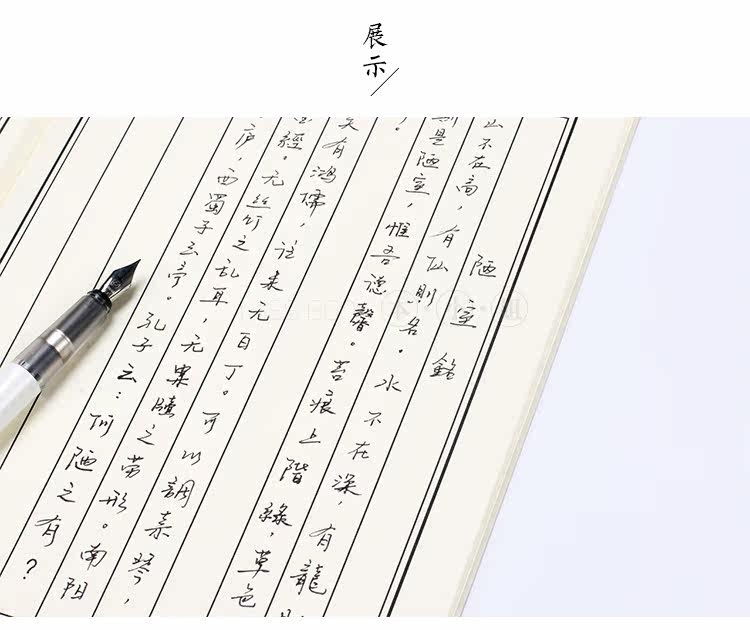 展
示
陋室銘
山不在高，有仙則名。水不在深，有龍
是陋室，惟吾德馨。苔痕上階綠，草色
笑有鴻儒，往来无白丁。可以調素琴，
經。无丝竹之乱耳，无案牘之劳形。南阳
庐，西蜀子云亭。孔子云：何陋之有？